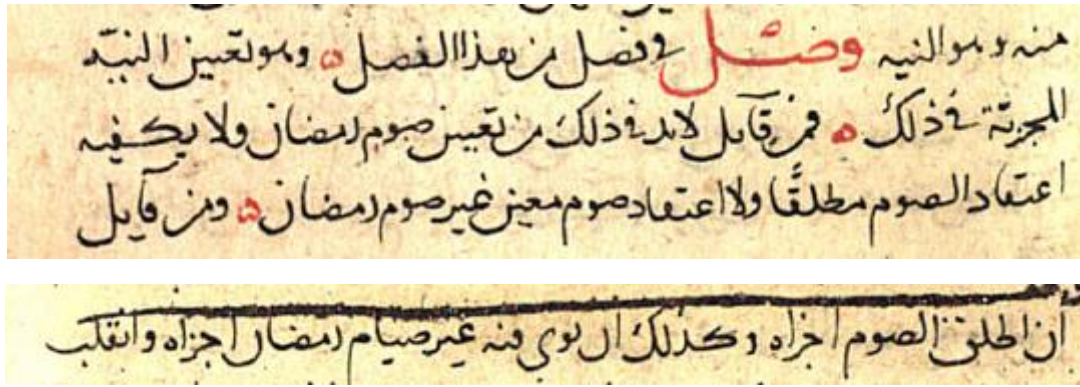 منه وهو النيه وصــل في فصل من هذا الفصل ه وهو تعيين النيّه
المجزيّة في ذلك ه فمن قآيل لابد في ذلك من تعيين صوم رمضان ولا يكفيه
اعتقاد الصوم مطلقًا ولا اعتقاد صوم معين غير صوم رمضان ه ومن قايل
ان اطلق الصوم اجزاه وكذلك ان نوى فيه غير صيام رمضان اجزاه وانقلب